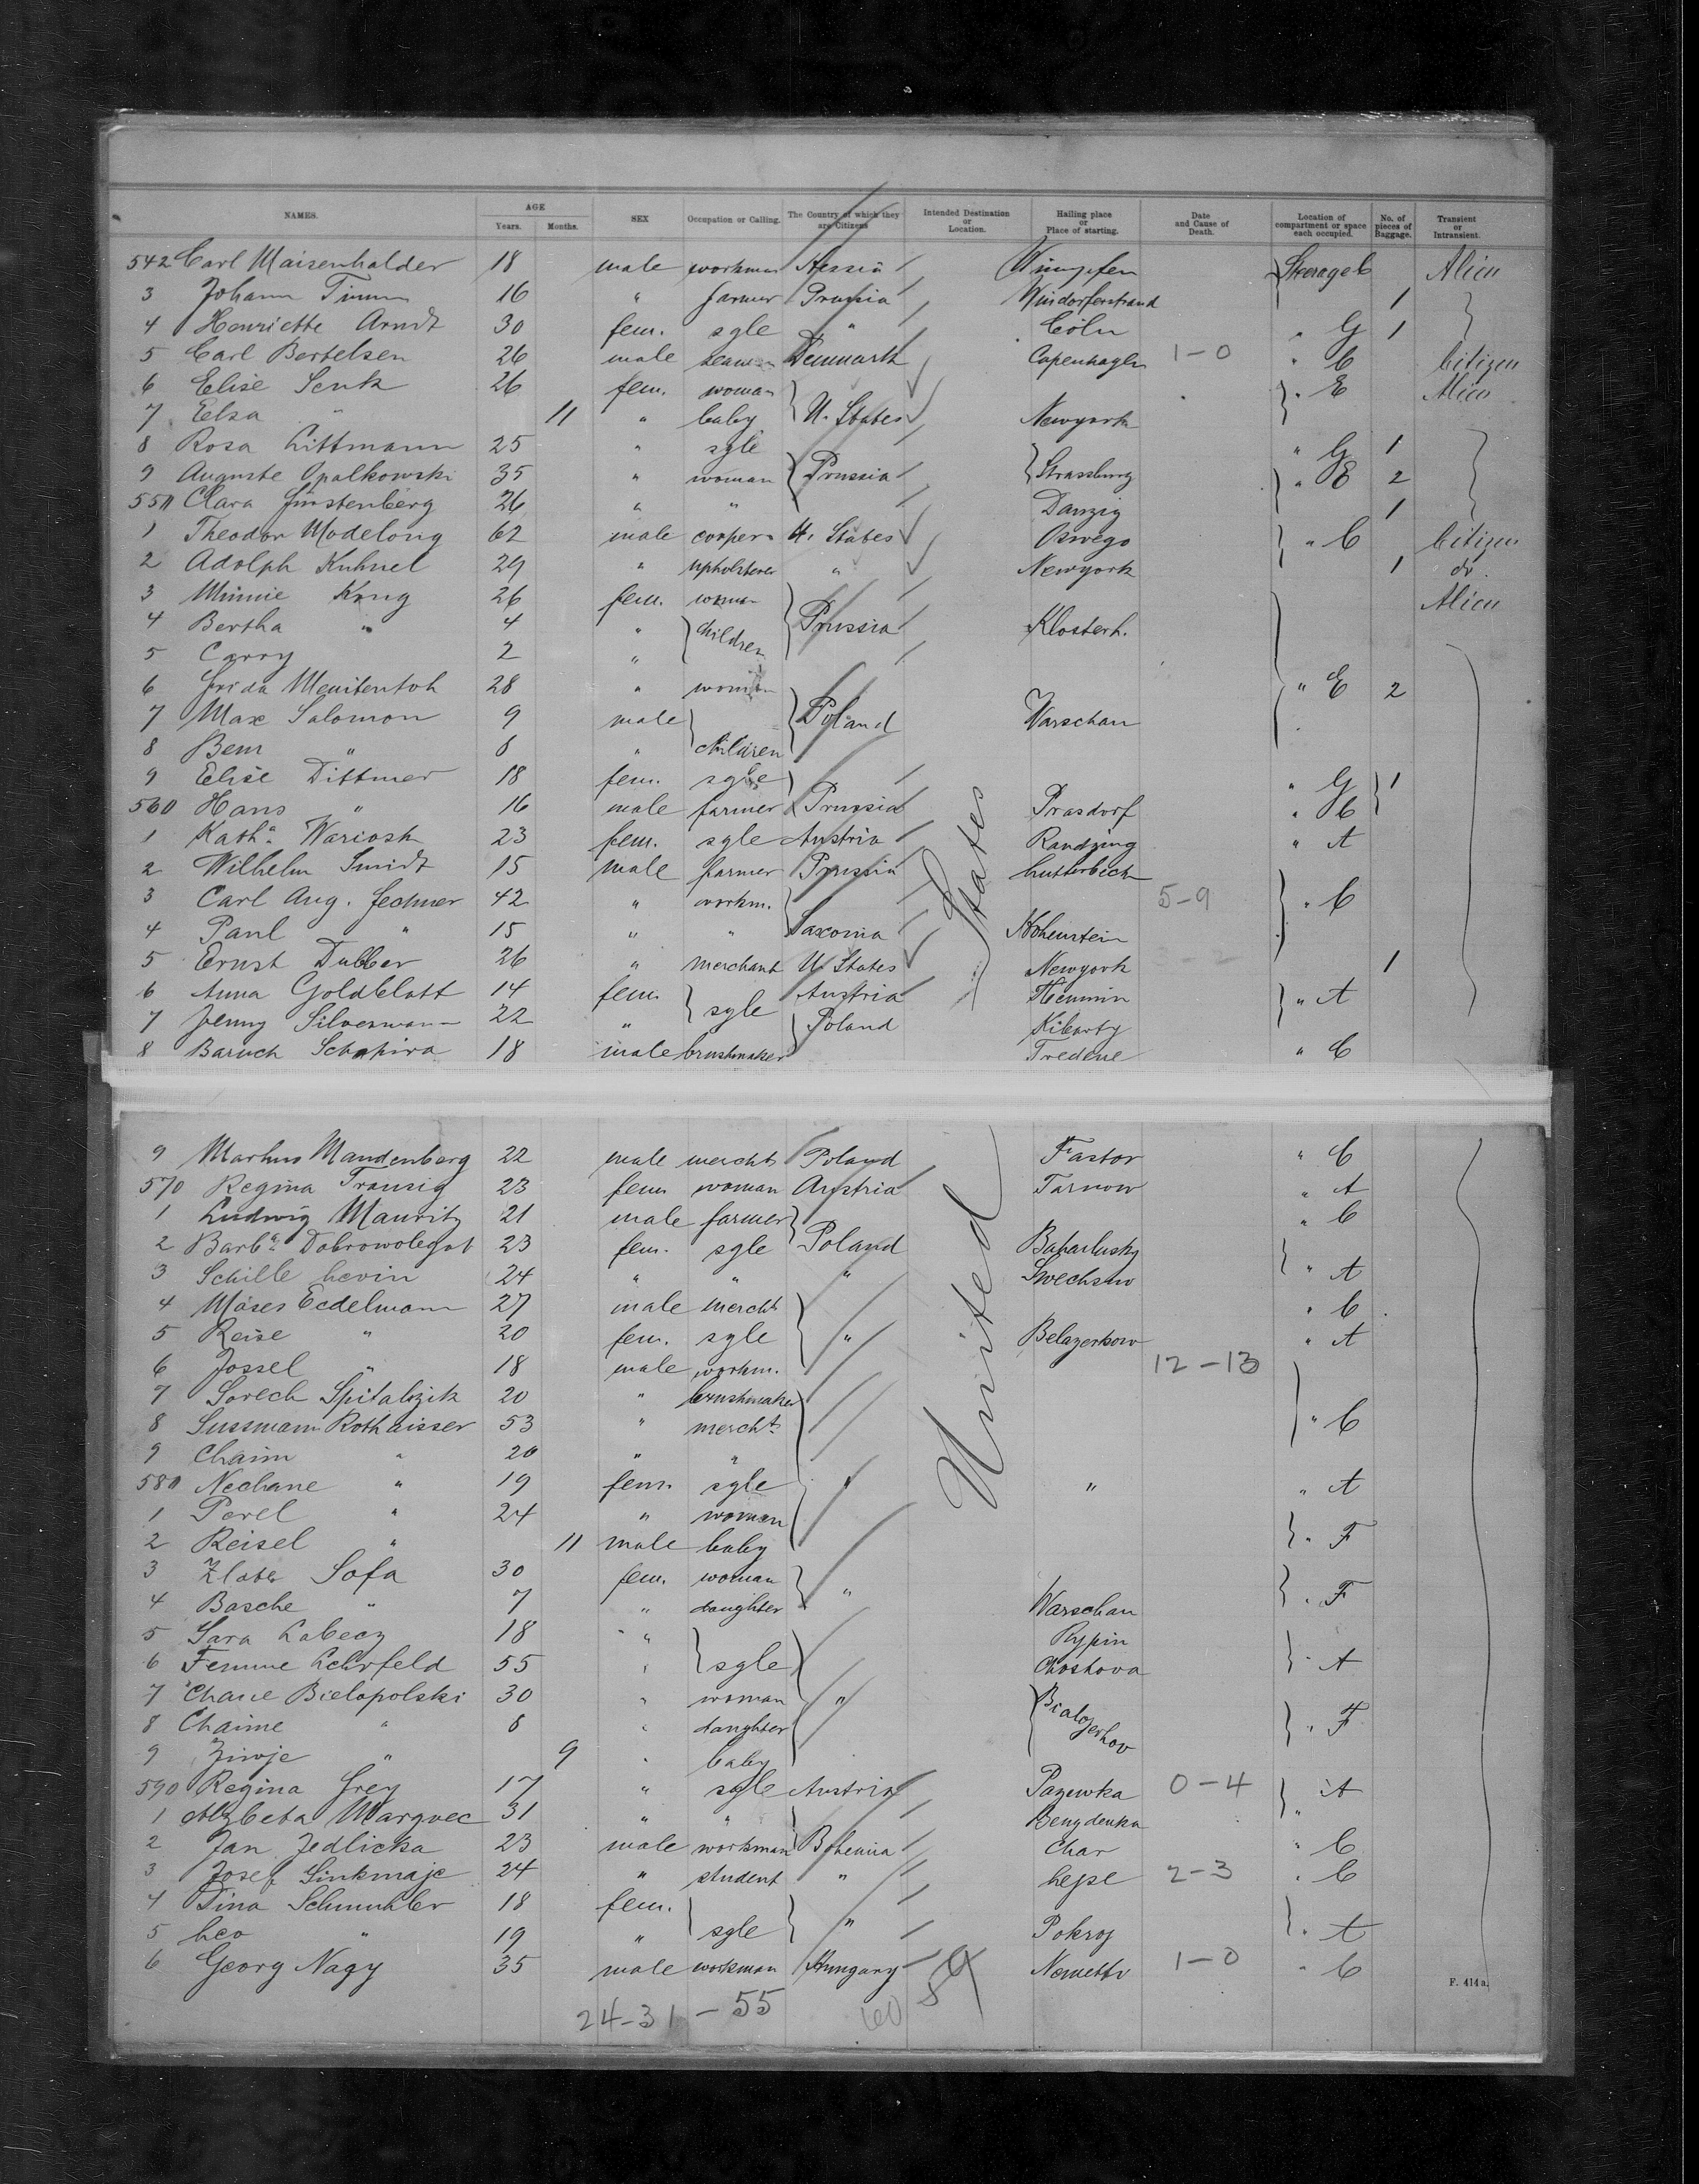 NAMES. AGE Years. Months. SEX Occupation or Calling. The Country of which they are Citizens Intended Destination or Location. Hailing place or Place of starting. Date and Cause of Death. Location of compartment or space each occupied. No. of pieces of Baggage. Transient or Intransient.
542 Carl Maisenhalder 18 male workman Hessia Wimpfen Steerage C Alien
3 Johann Timm 16 " farmer Prussia 1
4 Henriette Arndt 30 fem. sgle " Cöln " G 1
5 Carl Bertelsen 26 male seaman Denmark Copenhagen 1-0 " C Citizen
6 Elise Senk 26 fem. woman " E Alien
7 Elsa " 11 " baby U. States Newyork
8 Rosa Littmann 25 " sgle " G 1
9 Auguste Opalkowski 35 " woman Prussia Strassburg " E 2
550 Clara Fürstenberg 26 " " Danzig 1
1 Theodor Modelong 62 male cooper U. States Oswego " C Citizen
2 Adolph Kuhnel 29 " upholsterer " Newyork 1 do.
3 Minnie King 26 fem. woman Alien
4 Bertha " 4 " children Prussia Klosterh.
5 Carry 2 "
6 Frida 28 " woman " E 2
7 Max Salomon 9 male Poland Warschau
8 Bem " 8 " children
9 Elise Dittmer 18 fem. sgle " G 1
560 Hans " 16 male farmer Prussia Prasdorf " C
1 Kath. Wariosk 23 fem. sgle Austria Randzing " A
2 Wilhelm Smidt 15 male farmer Prussia Lutterbeck
3 Carl Aug. Fechner 42 " workm. 5-9 " C
4 Paul " 15 " " Saxonia Hohenstein
5 Ernst Dubber 26 " merchant U. States Newyork 1
6 Anna Goldblatt 14 fem. Austria " A
7 Jenny Silverman 22 " sgle Poland Kibarty
8 Baruch Schapira 18 male brushmaker Tredene " C
9 Markus Mandenberg 22 male mercht Poland Fastov " C
570 Regina Transig 23 fem. woman Austria Tarnow " A
1 Ludwig Mauritz 21 male farmer " C
2 Barba. 23 fem. sgle Poland
3 Schille Levin 24 " " " " A
4 Moses Eedelmann 27 male mercht " C
5 Reise " 20 fem. sgle " Belazerkow " A
6 Jossel " 18 male workm. 12-13
7 Sorech Spitalzik 20 " brushmaker
8 Sussmann Rothaisser 53 " mercht. " C
9 Chaim " 20 " "
580 Nechane " 19 fem. sgle " " " A
1 Perel " 24 " woman
2 Reisel " 11 male baby " F
3 Zlate Sofa 30 fem. woman "
4 Basche " 7 " daughter Warschau " F
5 Sara Labecz 18 " Rypin
6 Femme Lehrfeld 55 " sgle " A
7 Chane Bielopolski 30 " woman " Bialozerkov
8 Chaime " 8 " daughter " F
9 Ziwje " 9 " baby
590 Regina Frey 17 " sgle Austria 0-4 A
1 Alzbeta Marqvec 31 " " "
2 Jan Jedlicka 23 male workman Bohemia Char " C
3 Josef Sinkmaje 24 " student " 2-3 " C
4 Tina Schmukler 18 fem.
5 Leo " 19 " sgle " Pokroj " A
6 Georg Nagy 35 male workman Hungary 1-0 " C
United States
24-31-55 60 59
F. 414 a.